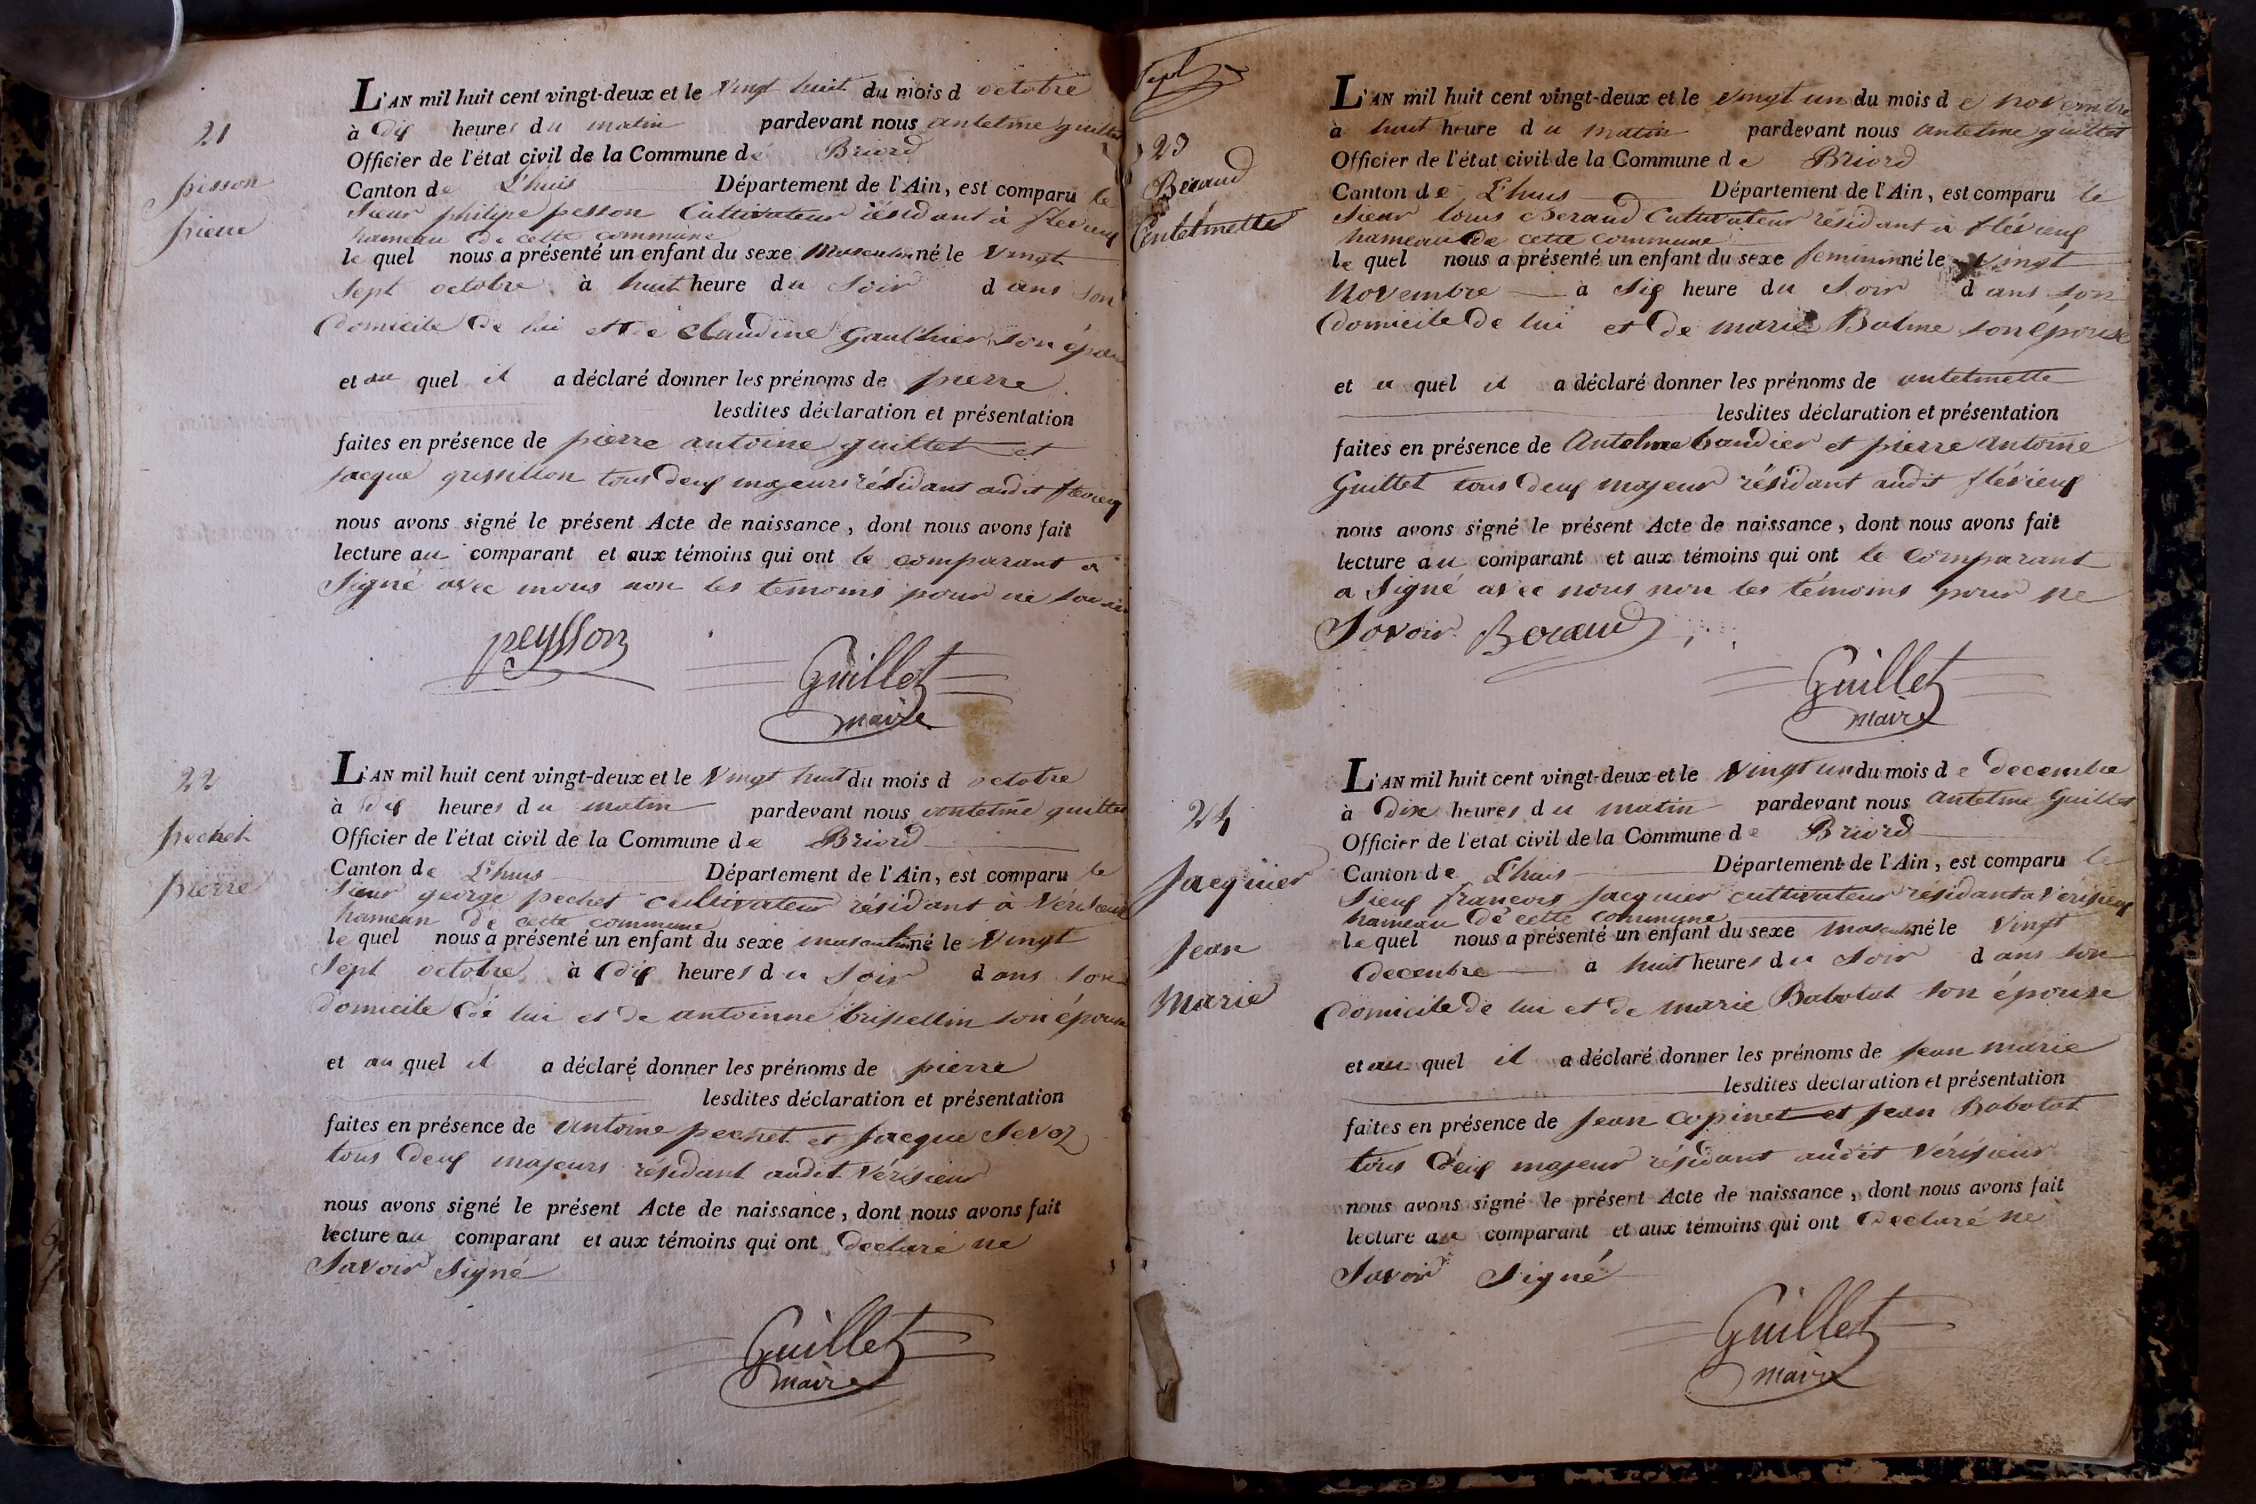 21
pesson
pierre
L'AN mil huit cent vingt-deux et le Vingt huit du mois d octobre
à dix heures du matin pardevant nous antelme guillet
Officier de l'état civil de la Commune de Briord
Canton de L'huis Département de l'Ain, est comparu le
Sieur philipe pesson Cultivateur résidant à flévieux
hameau de cette commune
le quel nous a présenté un enfant du sexe Masculin né le Vingt
Sept octobre à huit heure du Soir dans son
domicile de lui et de Claudine Gaulthier son épouse
et au quel il a déclaré donner les prénoms de pierre
lesdites déclaration et présentation
faites en présence de pierre antoine guillet et
Jacque tous deux majeurs résidant audit flévieux
nous avons signé le présent Acte de naissance, dont nous avons fait
lecture au comparant et aux témoins qui ont le comparant a
Signé avec nous non les témoins pour ne savoir
peysson
Guillet
maire
22
pechet
pierre
L'AN mil huit cent vingt-deux et le Vingt huit du mois d octobre
à dix heures du matin pardevant nous antelme guillet
Officier de l'état civil de la Commune de Briord
Canton de L'huis Département de l'Ain, est comparu le
Sieur george pechet cultivateur résidant à Vérisieux
hameau de cette commune
le quel nous a présenté un enfant du sexe masculin né le Vingt
Sept octobre à dix heures du Soir dans son
domicile de lui et de antoinne tripellin son épouse
et au quel il a déclaré donner les prénoms de pierre
lesdites déclaration et présentation
faites en présence de antoine pechet et Jacque Sevoz
tous deux majeurs résidant audit Vérisieux
nous avons signé le présent Acte de naissance, dont nous avons fait
lecture au comparant et aux témoins qui ont declaré ne
Savoir Signé
Guillet
maire
23
Beraud
Antelmette
L'AN mil huit cent vingt-deux et le vingt un du mois de novembre
à huit heure du matin pardevant nous antelme guillet
Officier de l'état civil de la Commune de Briord
Canton de L'huis Département de l'Ain, est comparu le
Sieur Louis Beraud Cultivateur résidant à flévieux
hameau de cette commune
le quel nous a présenté un enfant du sexe feminin né le vingt
Novembre à Six heure du Soir dans son
domicile de lui et de marie Balme son épouse
et a quel il a déclaré donner les prénoms de antelmette
lesdites déclaration et présentation
faites en présence de Antelme baudier et pierre antoine
Guillet tous deux majeur résidant audit flévieux
nous avons signé le présent Acte de naissance, dont nous avons fait
lecture au comparant et aux témoins qui ont le comparant
a Signé avec nous non les témoins pour ne
Savoir Beraud
Guillet
maire
24
Jacquier
Jean
Marie
L'AN mil huit cent vingt-deux et le Vingt un du mois de decembre
à dix heures du matin pardevant nous antelme Guillet
Officier de l'etat civil de la Commune de Briord
Canton de L'huis Département de l'Ain, est comparu le
Sieur francois Jacquier cultivateur résidant a Verisieux
hameau de cette commune
le quel nous a présenté un enfant du sexe masculin né le Vingt
decembre à huit heures du Soir dans son
domicile de lui et de marie Babolat son épouse
et au quel il a déclaré donner les prénoms de Jean marie
lesdites déclaration et présentation
faites en présence de Jean Copinet et Jean Babolat
tous deux majeur résidant audit Vérisieux
nous avons signé le présent Acte de naissance, dont nous avons fait
lecture au comparant et aux témoins qui ont declaré ne
Savoir Signé
Guillet
maire